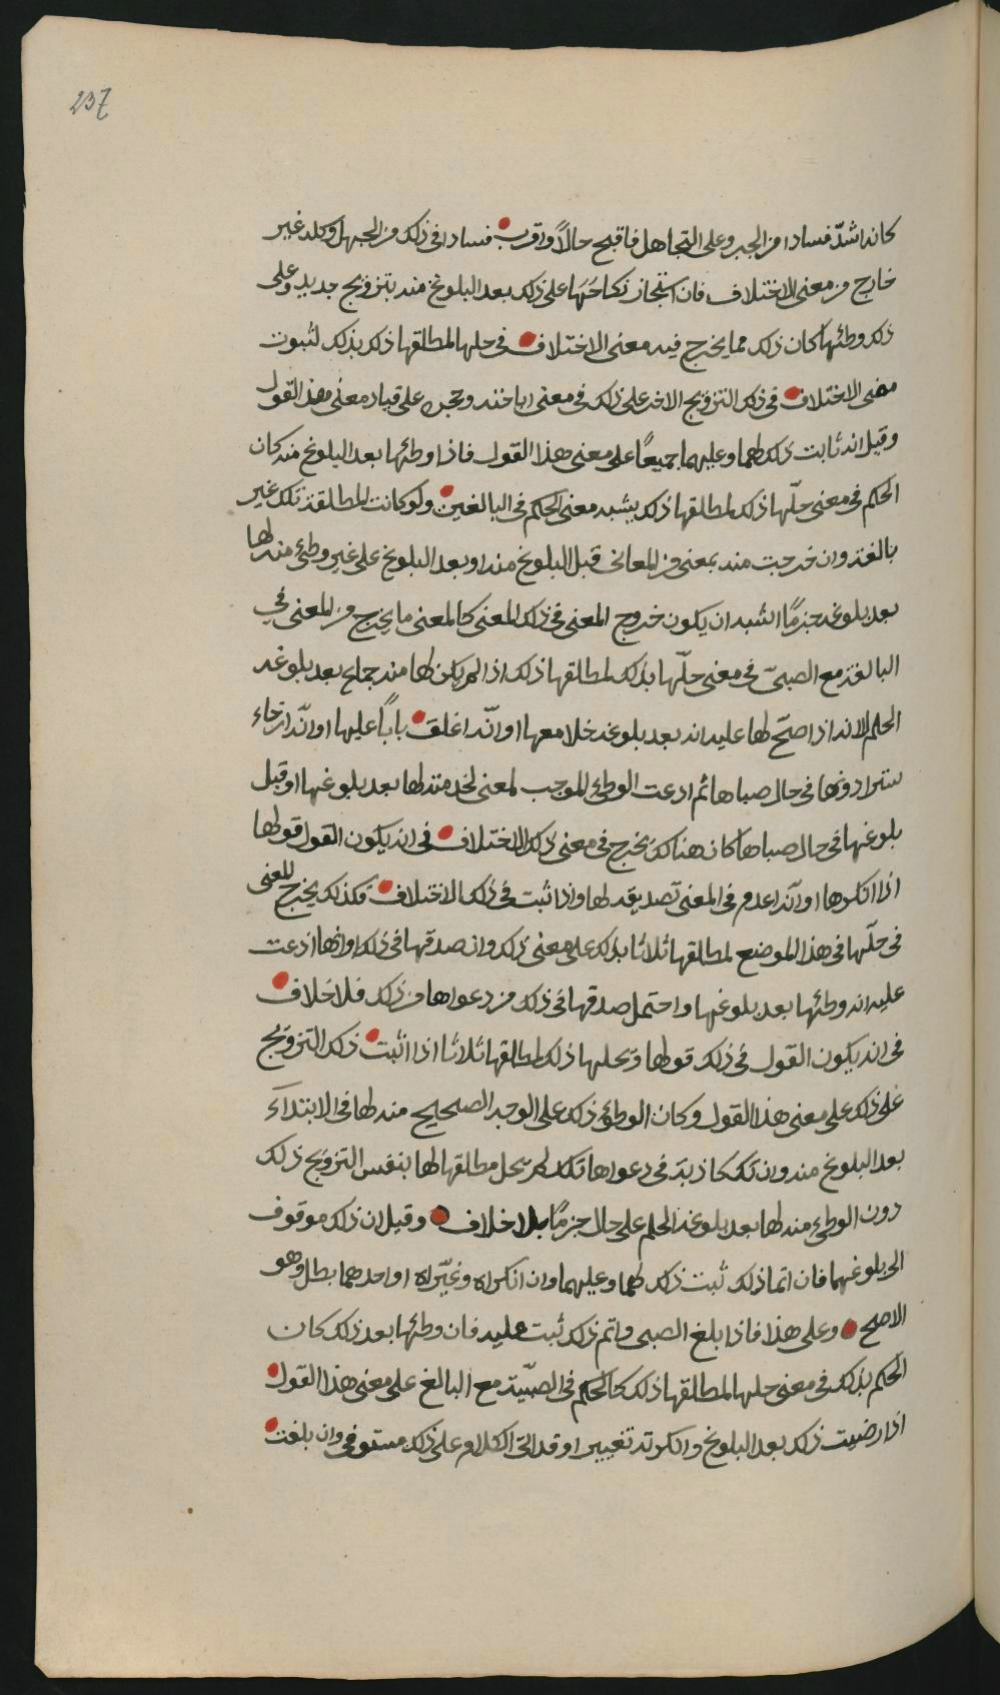 237
كانه اشدّ فسادا من الجبر وعلى التجاهل فاقبح حالاً واقرب فسادا في ذلك من الجهل وكله غير
خارج من معنى الاختلاف فان استجاز نكاحَهَا على ذلك بعد البلوغ منه بتزويج جديد وعلى
ذلك وطئها كان ذلك مما يخرج فيه معنى الاختلاف في حلها لمطلقها ذلك بذلك لثبوت
معنى الاختلاف في ذلك التزويج الاخر على ذلك في معنى على قياد معنى هذا القول
وقيل انه ثابت ذلك لهما وعليهما جميعًا على معنى هذا القول فاذا وطئها بعد البلوغ منه كان
الحكم في معنى حلّها ذلك لمطلقها ذلك يشبه معنى الحكم في البالغين ولو كانت المطلقة تلك غير
بالغة وان خرجت منه بمعنى من المعاني قبل البلوغ منه او بعد البلوغ على غير وطئ منه لها
بعد بلوغه جزمًا اشبه ان يكون خروج المعنى في ذلك المعنى كالمعنى ما يخرج من المعنى في
البالغة مع الصبيّ في معنى حلّها بذلك لمطلقها ذلك اذا لم يكن لها منه جماع بعد بلوغه
الحلم الا انه اذا صحّ لها عليه انه بعد بلوغه خلا معها او انّه اغلق باباً عليها او انّه ارخاء
سترا دونها في حال صباها ثم ادعت الوطئ الموجب لمعنى لخدمته لها بعد بلوغها او قبل
بلوغها في حال صباها كان هنالك يخرج في معنى ذلك الاختلاف في انه يكون القول قولها
اذا انكرها او انّه اعدم في المعنى تصديقه لها واذا ثبت في ذلك الاختلاف فكذلك يخرج المعنى
في حلّها في هذا الموضع لمطلقها ثلاثا بذلك على معنى ذلك وان صدقها في ذلك او انها ادعت
عليه انه وطئها بعد بلوغها واحتمل صدقها في ذلك من دعواها من ذلك فلا خلاف
في انه يكون القول في ذلك قولها ويحلها ذلك لمطالقها ثلاثا اذا اثبت ذلك التزويج
على ذلك على معنى هذا القول وكان الوطئ ذلك على الوجه الصحيح منه لها في الابتداء
بعد البلوغ منه وان تك كاذبة في دعواها تلك لم يحل مطلقها لها بنفس التزويج ذلك
دون الوطئ منه لها بعد بلوغه الحلم على حال جزمًا بلا خلاف وقيل ان ذلك موقوف
الى بلوغهما فان اتما ذلك ثبت ذلك لهما وعليهما وان انكراه وغيّراه او احدهما بطل وهو
الاصح وعلى هذا فاذا بلغ الصبى واتم ذلك ثبت عليه فان وطئها بعد ذلك كان
الحكم بذلك في معنى حلها لمطلقها ذلك كالحكم في الصبّية مع البالغ على معنى هذا القول
اذا رضيت ذلك بعد البلوغ وانكرته تغيير او قد اتى الكلام على ذلك مستوفى وان بلغت